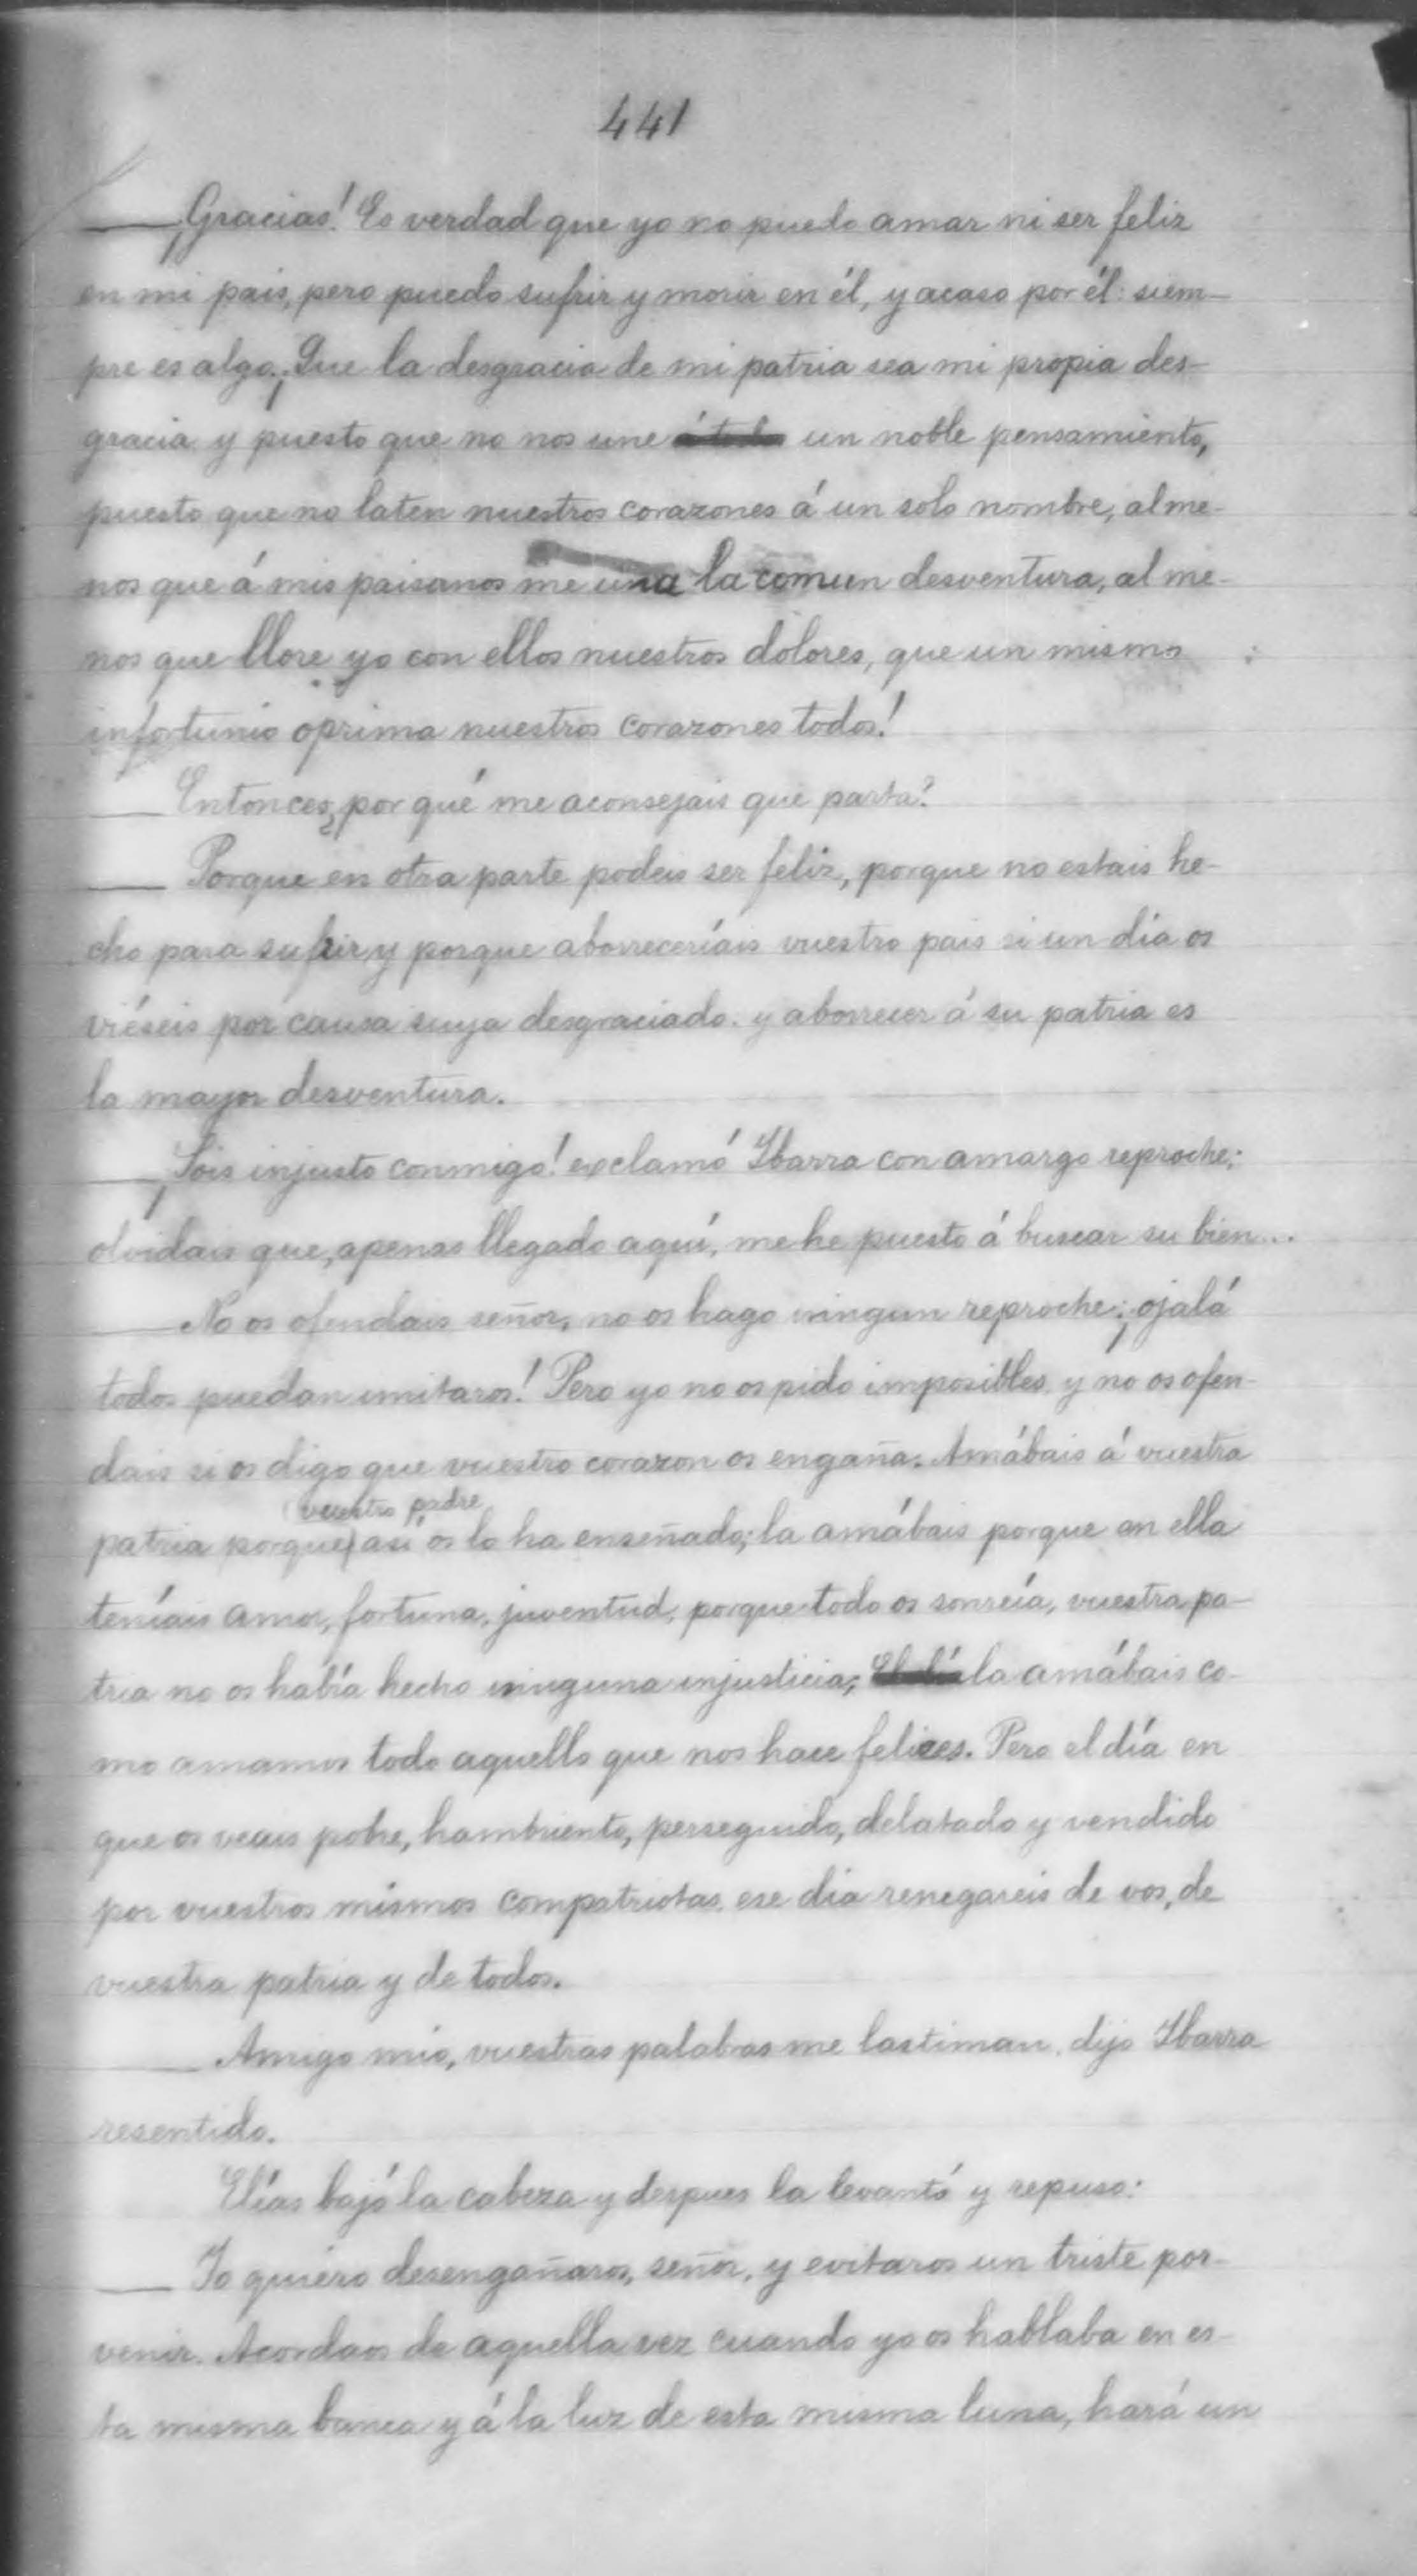 441
—¡Gracias! Es verdad que yo no puedo amar ni ser feliz
en mi pais, pero puedo sufrir y morir en él, y acaso por él: siem-
pre es algo. ¡Que la desgracia de mi patria sea mi propia des-
gracia y puesto que no nos une á todos un noble pensamiento,
puesto que no laten nuestros corazones á un solo nombre, al me-
nos que á mis paisanos me una la comun desventura, al me-
nos que llore yo con ellos nuestros dolores, que un mismo
infortunio oprima nuestros corazones todos!
— Entonces ¿por qué me aconsejais que parta?
— Porque en otra parte podeis ser feliz, porque no estais he-
cho para sufrir y porque aborreceríais vuestro pais si un día os
viéseis por causa suya desgraciado. y aborrecer á su patria es
la mayor desventura.
— ¡Sois injusto conmigo! exclamó Ibarra con amargo reproche;
olvidais que, apenas llegado aquí, me he puesto á buscar su bien...
— No os ofendais señor, no os hago ningun reproche; ¡ojalá
todos puedan imitaros! Pero yo no os pido imposibles y no os ofen-
dais si os digo que vuestro corazon os engaña. Amábais á vuestra
vuestro padre
patria porque así os lo ha enseñado; la amábais porque en ella
teníais amor, fortuna, juventud, porque todo os sonreía, vuestra pa-
tria no os había hecho ninguna injusticia; El día la amábais co-
mo amamos todo aquello que nos hace felices. Pero el día en
que os veais pobre, hambriento, perseguido, delatado y vendido
por vuestros mismos compatriotas ese dia renegareis de vos, de
vuestra patria y de todos.
— Amigo mio, vuestras palabras me lastiman, dijo Ibarra
resentido.
Elías bajó la cabeza y despues la levantó y repuso:
— Yo quiero desengañaros, señor, y evitaros un triste por-
venir. Acordaos de aquella vez cuando yo os hablaba en es-
ta misma banca y á la luz de esta misma luna, hará un